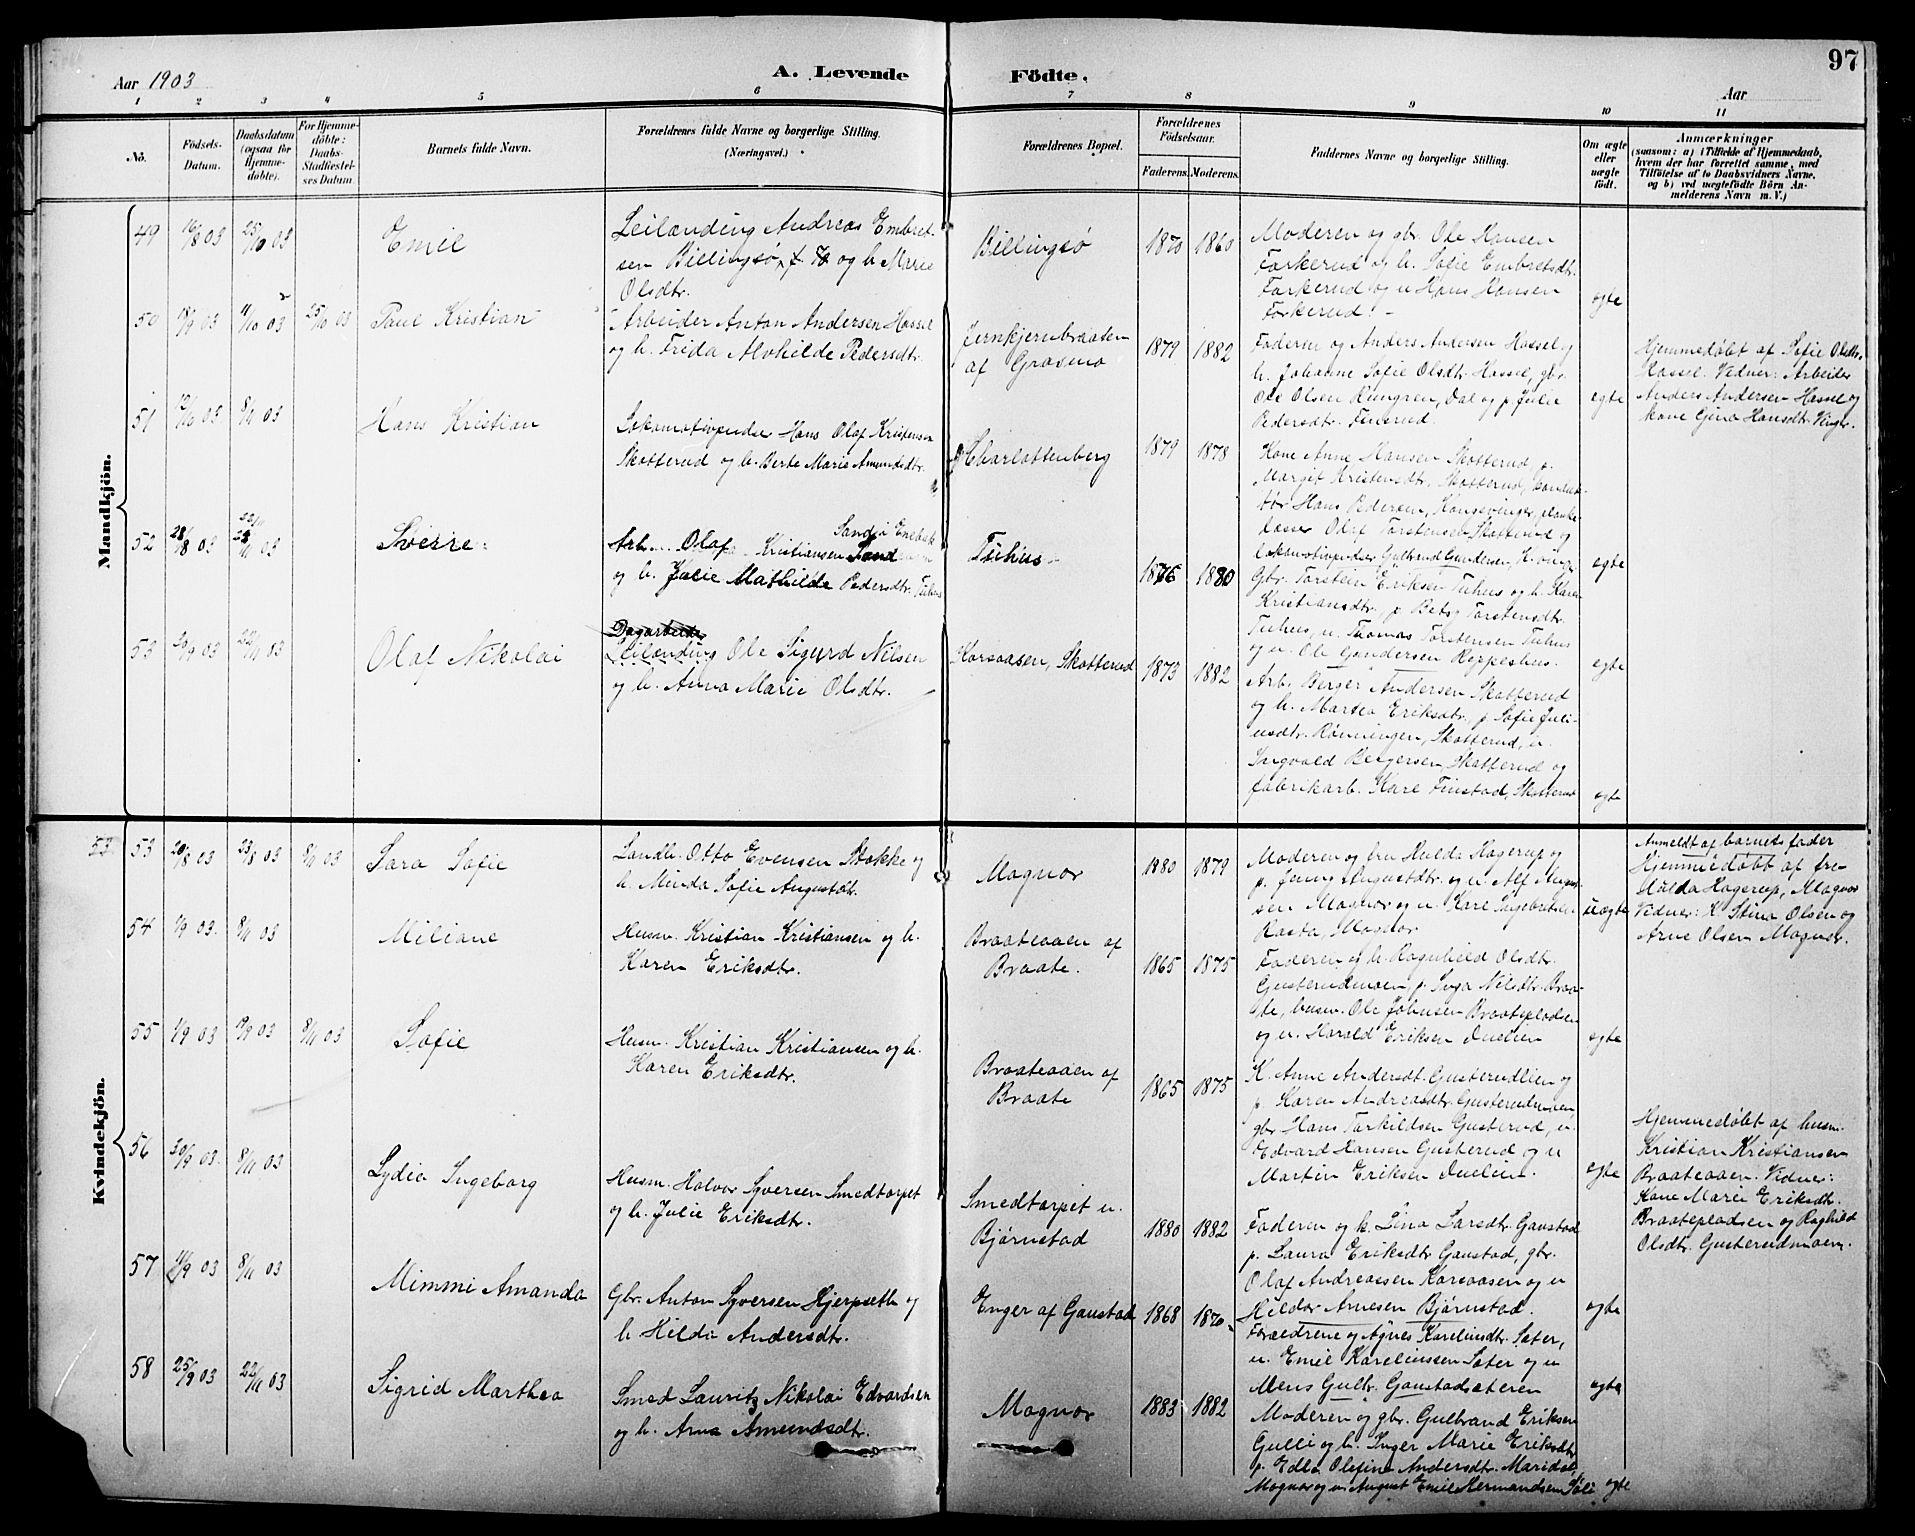 97
Aar 1903
A. Levende
Födte.
Aar
1 2 3 4 5 6 7 8 9 10 11
Nö.
Födsels-
Datum.
Daabsdatum
(ogsaa for
Hjemme-
döbte).
For Hjemme-
döbte:
Daabs-
Stadfæstel-
ses Datum
Barnets fulde Navn.
Forældrenes fulde Navne og borgerlige Stilling.
(Næringsvei.)
Forældrenes Bopæl.
Forældrenes
Födselsaar.
Faderens. Moderens.
Faddernes Navne og borgerlige Stilling.
Om ægte
eller
uægte
födt.
Anmærkninger
(saasom: a) i Tilfælde af Hjemmedaab,
hvem der har forrettet samme, med
Tilföielse af to Daabsvidners Navne,
og b) ved uægtefödte Börn An-
melderens Navn m. V.)
Mandkjön.
49 16/8 03 25/10 03
Emil
Leilænding Andreas Embret-
sen Billingsø, og h. Marie
Olsdtr.
Billingsø
1870 1860
Moderen og gbr. Ole Hansen
Forkerud og h. Sofie Embretsdtr.
Forkerud og u Hans Hansen
Forkerud.
egte
50 18/9 03 11/10 03 25/10 03
Paul Kristian
Arbeider Anton Andersen Hassel
og h. Frida Alvhilde Pedersdtr.
Jernkjernbraaten
af Grasmo
1879 1882
Faderen og Anders Andersen Hassel og
h. Johanne Sofie Olsdtr. Hassel, gbr.
Ole Olsen Rungren, Dal og p. Julie
Pedersdtr.
egte
Hjemmedøbt af Sofie Olsdtr.
Hassel. Vidner: Arbeider
Anders Andersen Hassel og
kone Gina Hansdtr. Vinger.
51 12/10 03 8/11 03
Hans Kristian
Lokomotivpudser Hans Olaf Kristensen
Skotterud og h. Berte Marie Amundsdtr.
Charlottenberg
1879 1878
Kone Anne Hansen Skotterud, p.
Margit Kristensdtr. Skotterud, konduk-
tør Hans Pedersen, Kongsvinger, planke-
læsser Olaf Torstensen Skotterud og
lokomotivpudser Gulbrand Gundersen, K.vinger
egte
52 28/8 03 22/11 03
Sverre
Arb. Olaf Kristiansen Sand i Enebak
og h. Julie Mathilde Pedersdtr. Tuhus
Tuhus
1876 1880
Gbr. Torstein Eriksen Tuhus og h. Karen
Kristiansdtr. p. Betsy Torstensdtr.
Tuhus, u. Thomas Torstensen Tuhus
og u. Ole Gundersen Reppeshus.
egte
53 20/9 03 22/11 03
Olaf Nikolai
Dagarbeider
Leilending Ole Sigurd Nilsen
og h. Anna Marie Olsdtr.
Korsaasen, Skotterud
1873 1882
Arb. Berger Andersen Skotterud
og h. Martea Eriksdtr., p Sofie Juli-
usdtr. Rønningen, Skotterud, u.
Ingvald Bergersen Skotterud og
fabrikarb. Karl Finstad, Skotterud
egte
Kvindekjön.
53 53 20/8 03 23/8 03 8/11 03
Sara Sofie
Landh. Otto Evensen Stokke og
h. Minda Sofie Augustdtr.
Magnor
1880 1879
Moderen og fru Hulda Hagerup og
p. Jenny Augustdtr. og u. Alf August-
sen Magnor og u. Karl Ingebretsen
Rasta, Magnor
uegte
Anmeldt af barnets fader
Hjemmedøbt af fru
Hulda Hagerup, Magnor
Vidner: K. Stina Olsen og
Arne Olsen Magnor.
54 1/9 03. 8/11 03
Miliane
Husm. Kristian Kristiansen og h.
Karen Eriksdtr.
Braateaaen af
Braate.
1865 1875
Faderen og h. Ragnhild Olsdtr.
Gusterudmoen, p. Inga Nilsdtr. Braa-
te, husm. Ole Johnsen Braatepladsen
og u. Harald Eriksen Duelien
egte
55 1/9 03 19/9 03 8/11 03
Sofie
Husm. Kristian Kristiansen og h.
Karen Eriksdtr.
Braateaaen af
Braate
1865 1875
K. Anne Andersdt. Gusterudlien og
p. Karen Andreasdtr. Gusterudmoen
gbr Hans Torkildsen Gusterud, u.
Edvard Hansen Gusterud og u
Martin Eriksen Duelien.
egte
Hjemmedøbt af husm.
Kristian Kristiansen
Braateaaen. Vidner:
Kone Marie Eriksdtr.
Braatepladsen og Raghild
Olsdtr. Gusterudmoen.
56 30/9 03. 8/11 03
Lydia Ingeborg
Husm. Halvor Syversen Smedtorpet
og h. Julie Eriksdtr.
Smedtorpet u.
Bjørnstad
1880 1882
Faderen og k. Lina Larsdtr. Gaustad
p. Laura Eriksdtr Gaustad, gbr.
Olaf Andreassen Korsaasen og u
Hildor Arnesen Bjørnstad.
egte
57 11/9 03 8/11 03
Mimmi Amanda
Gbr. Anton Syversen Hjerpseth og
h. Hilda Andersdtr.
Enger af Gaustad
1868 1870
Forældrene og Agnes Karelinsdtr. Sæter,
u. Emil Karelinssen Sæter og u
Mens Gulbr. Gaustadsæteren
egte
58 25/9 03 22/11 03
Sigrid Marthea
Smed Lauritz Nikolai Edvardsen
og h. Anna Amundsdtr.
Magnor
1883 1882
Moderen og gbr. Gulbrand Eriksen
Gulli og h. Inger Marie Eriksdtr.
p. Edla Olefine Andersdtr.
Magnor og u August Emil Hermandsen
egte